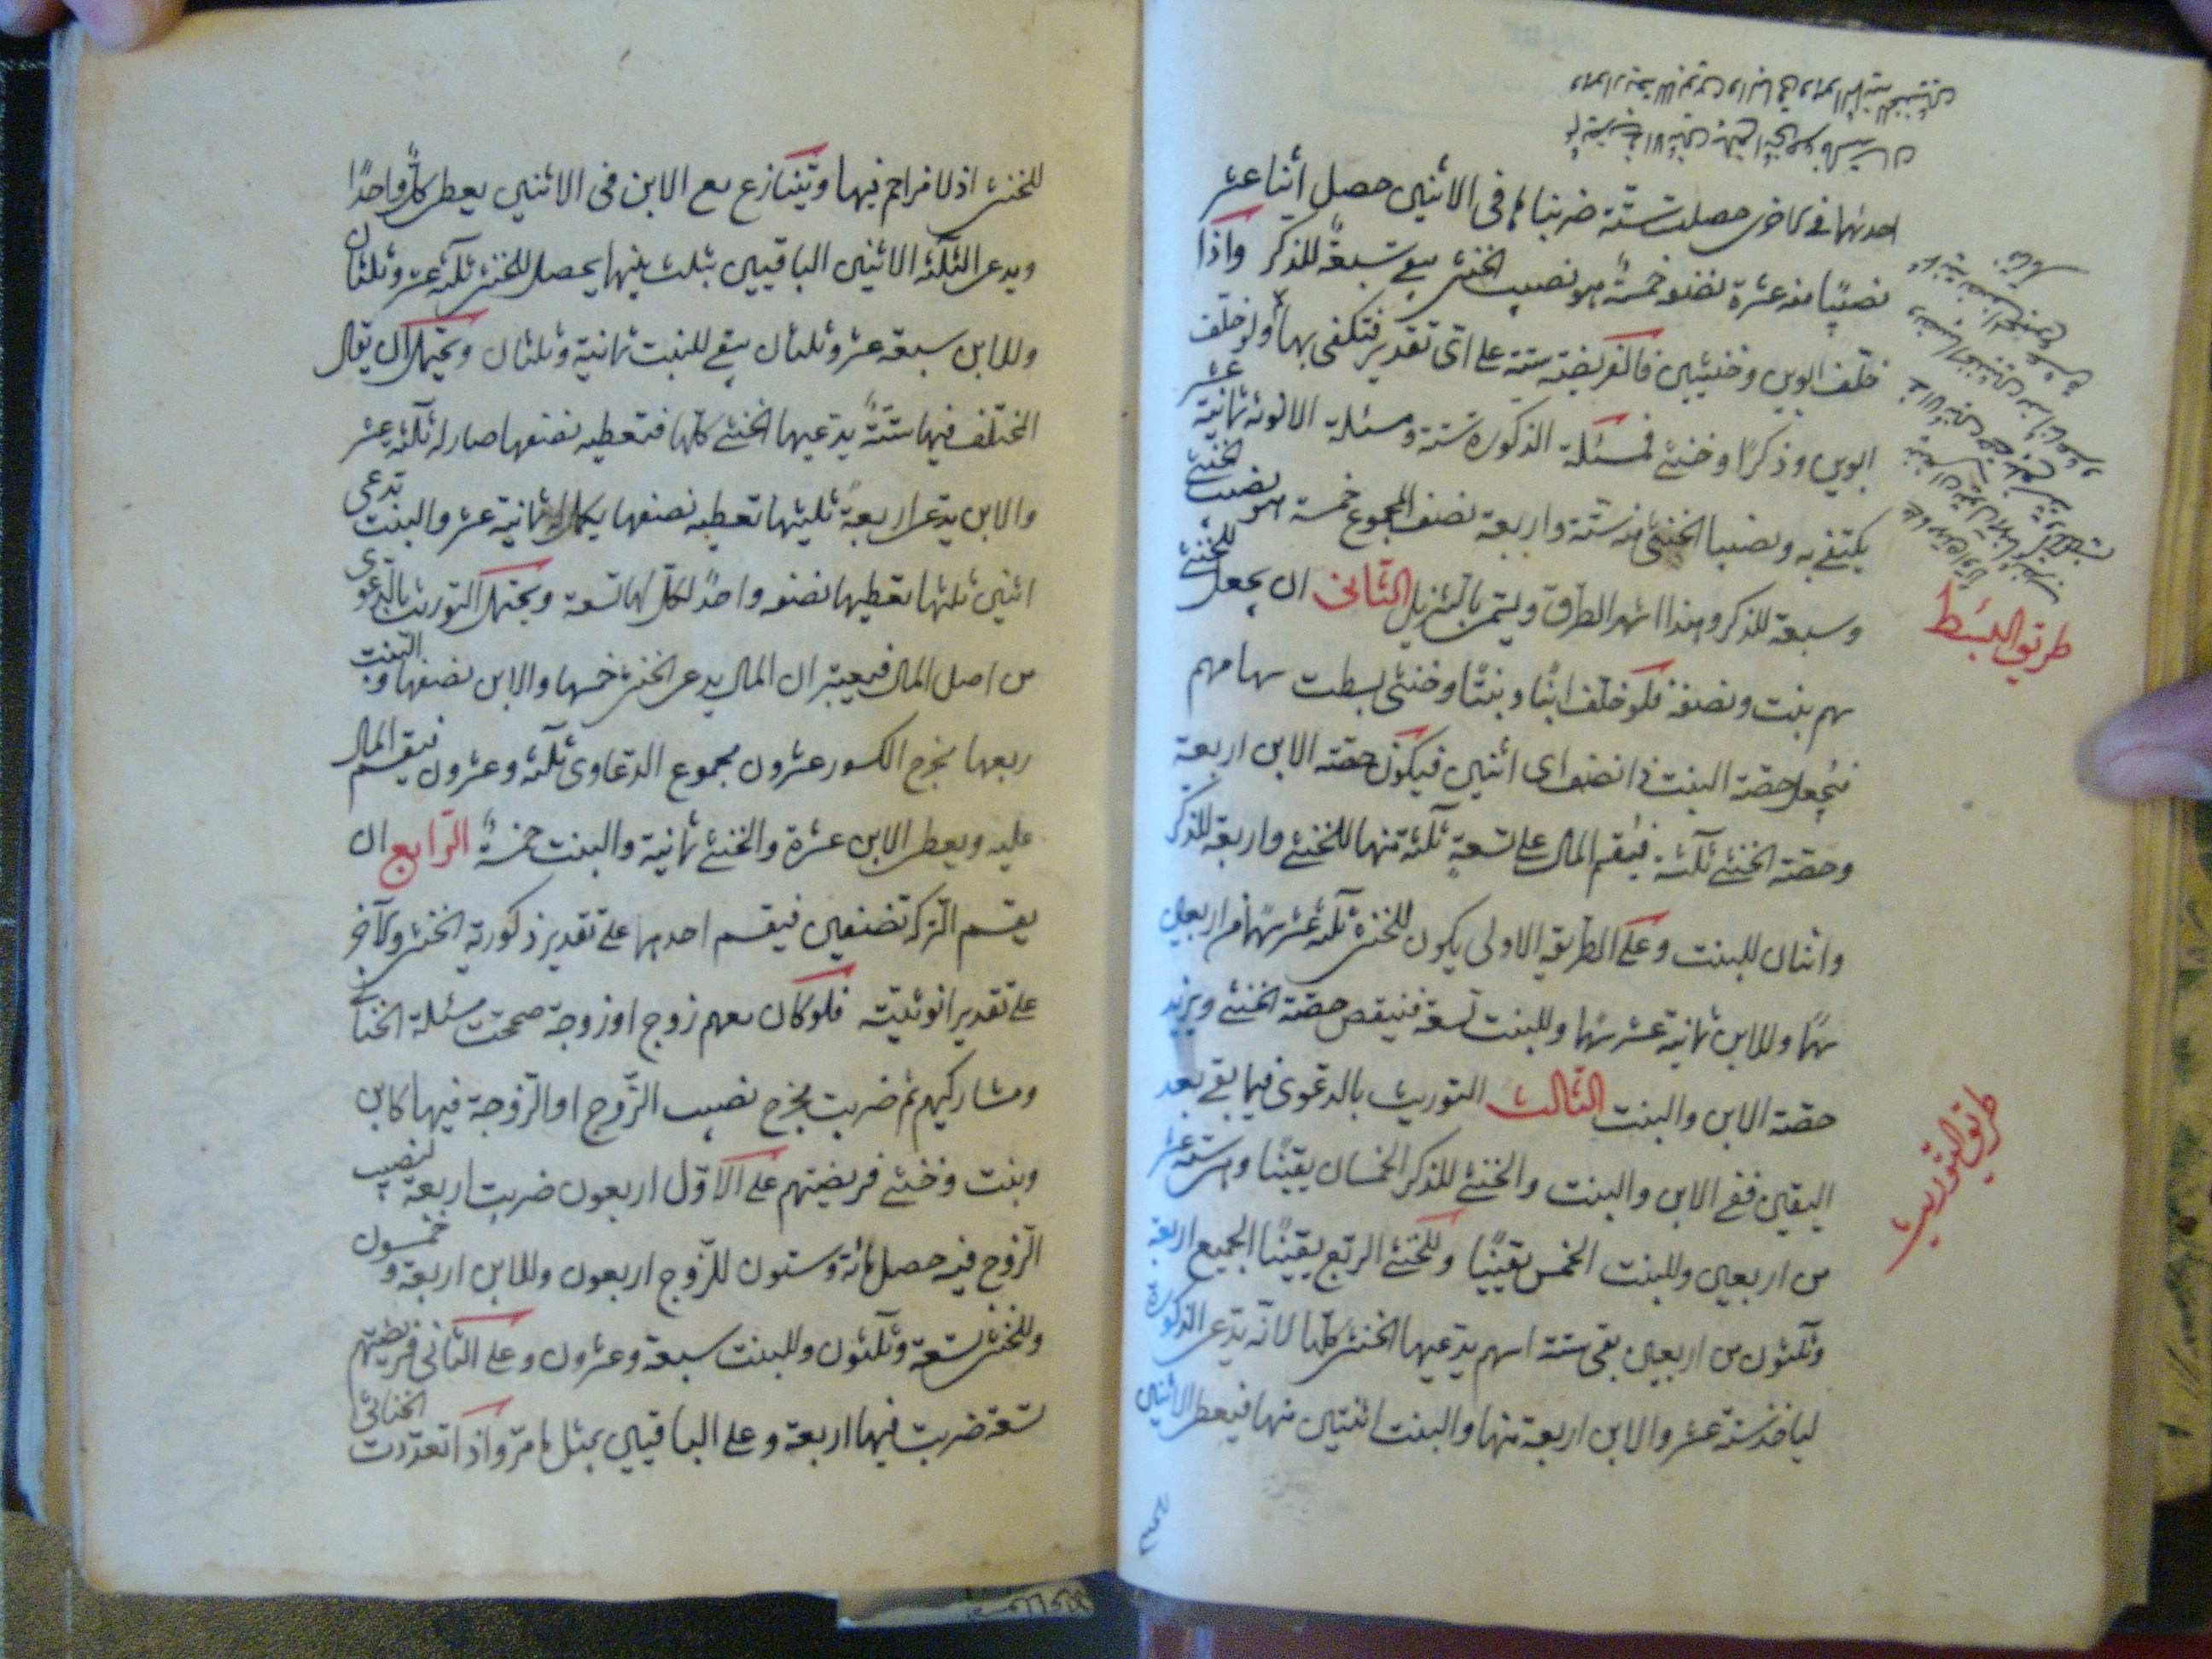 احديهما في الاخرى حصلت ستة ضربناها فى الاثنين حصل اثنا عشر
نصيبا منه عشرة نصفه خمسة هو نصيب الخنثى يبقى سبعة للذكر واذا
خلف ابوين وخنثيين فالفريضة ستة على اى تقدير فتكفى بها ولو خلف
ابوين وذكرًا وخنثى فمسئلة الذكورة ستة ومسئلة الانوثة ثمانية عشر
يكتفى به ونصيبا الخنثى منه ستة واربعة نصف المجموع خمسة هو نصيب الخنثى
وسبعة للذكر وهذا اشهر الطرق ويسمى بالتنزيل الثانى ان يجعل للخنثى
سهم بنت ونصفه فلو خلف ابنًا وبنتًا وخنثى بسطت سهامهم
فيجعل حصة البنت ذا نصف اى اثنين فيكون حصة الابن اربعة
وحصة الخنثى ثلثة فيقسم المال على تسعة ثلثة منها للخنثى واربعة للذكر
واثنان للبنت وعلى الطريقة الاولى يكون للخنثى ثلثة عشر سهمًا من اربعين
سهمًا وللابن ثمانية عشر سهمًا وللبنت تسعة فينقص حصة الخنثى ويزيد
حصة الابن والبنت الثالث التوريث بالدعوى فيما بقى بعد
اليقين ففى الابن والبنت والخنثى للذكر الخمسان يقينًا وهى ستة عشر
من اربعين وللبنت الخمس يقينًا وللخنثى الربع يقينًا الجميع اربعة
وثلثون من اربعين بقى ستة اسهم يدعيها الخنثى كلها لانه يدعى الذكورة
لياخذ ستة عشر والابن اربعة منها والبنت اثنتين منها فيعطى الاثنين
طريق البسط
طريق التوريث
للخنثى اذ لا مزاحم فيها ويتنازع مع الابن فى الاثنين يعطى كلًّا واحدًا
ويدعى الثلثة الاثنين الباقيين بثلث بينهما يحصل للخنثى ثلثة عشر وثلثان
وللابن سبعة عشر وثلثان يبقى للبنت ثمانية وثلثان ويحتمل ان يقال
المختلف فيها ستةً يدعيها الخنثى كلها فتعطيه نصفها صار له ثلثة عشر
والابن يدعى اربعة ثلثيها تعطيه نصفها يكمل له ثمانية عشر والبنت تدعى
اثنين ثلثها تعطيها نصفه واحدًا لكل لها تسعة ويحتمل التوريث بالدعوى
من اصل المال فيعتبر ان المال يدعى الخنثى خمسها والابن نصفها والبنت
ربعها مخرج الكسور عشرون مجموع الدعاوى ثلثة وعشرون فيقسم المال
عليه ويعطى الابن عشرة والخنثى ثمانية والبنت خمسةً الرابع ان
يقسم التركة نصفين فيقسم احدهما على تقدير ذكورية الخنثى والآخر
على تقدير انوثيته فلو كان معهم زوج او زوجة صححت مسئلة الخناثى
ومشاركيهم ثم ضربت مخرج نصيب الزوج او الزوجة فيها كابن
وبنت وخنثى فريضتهم على الاول اربعون ضربت اربعة نصيب
الزوج فيه حصل مائة وستون للزوج اربعون وللابن اربعة وخمسون
وللخنثى تسعة وثلثون وللبنت سبعة وعشرون وعلى الثانى فريضتهم
تسعة ضربت فيها اربعة وعلى الباقيين بمثل ما مر واذا تعددت الخناثى